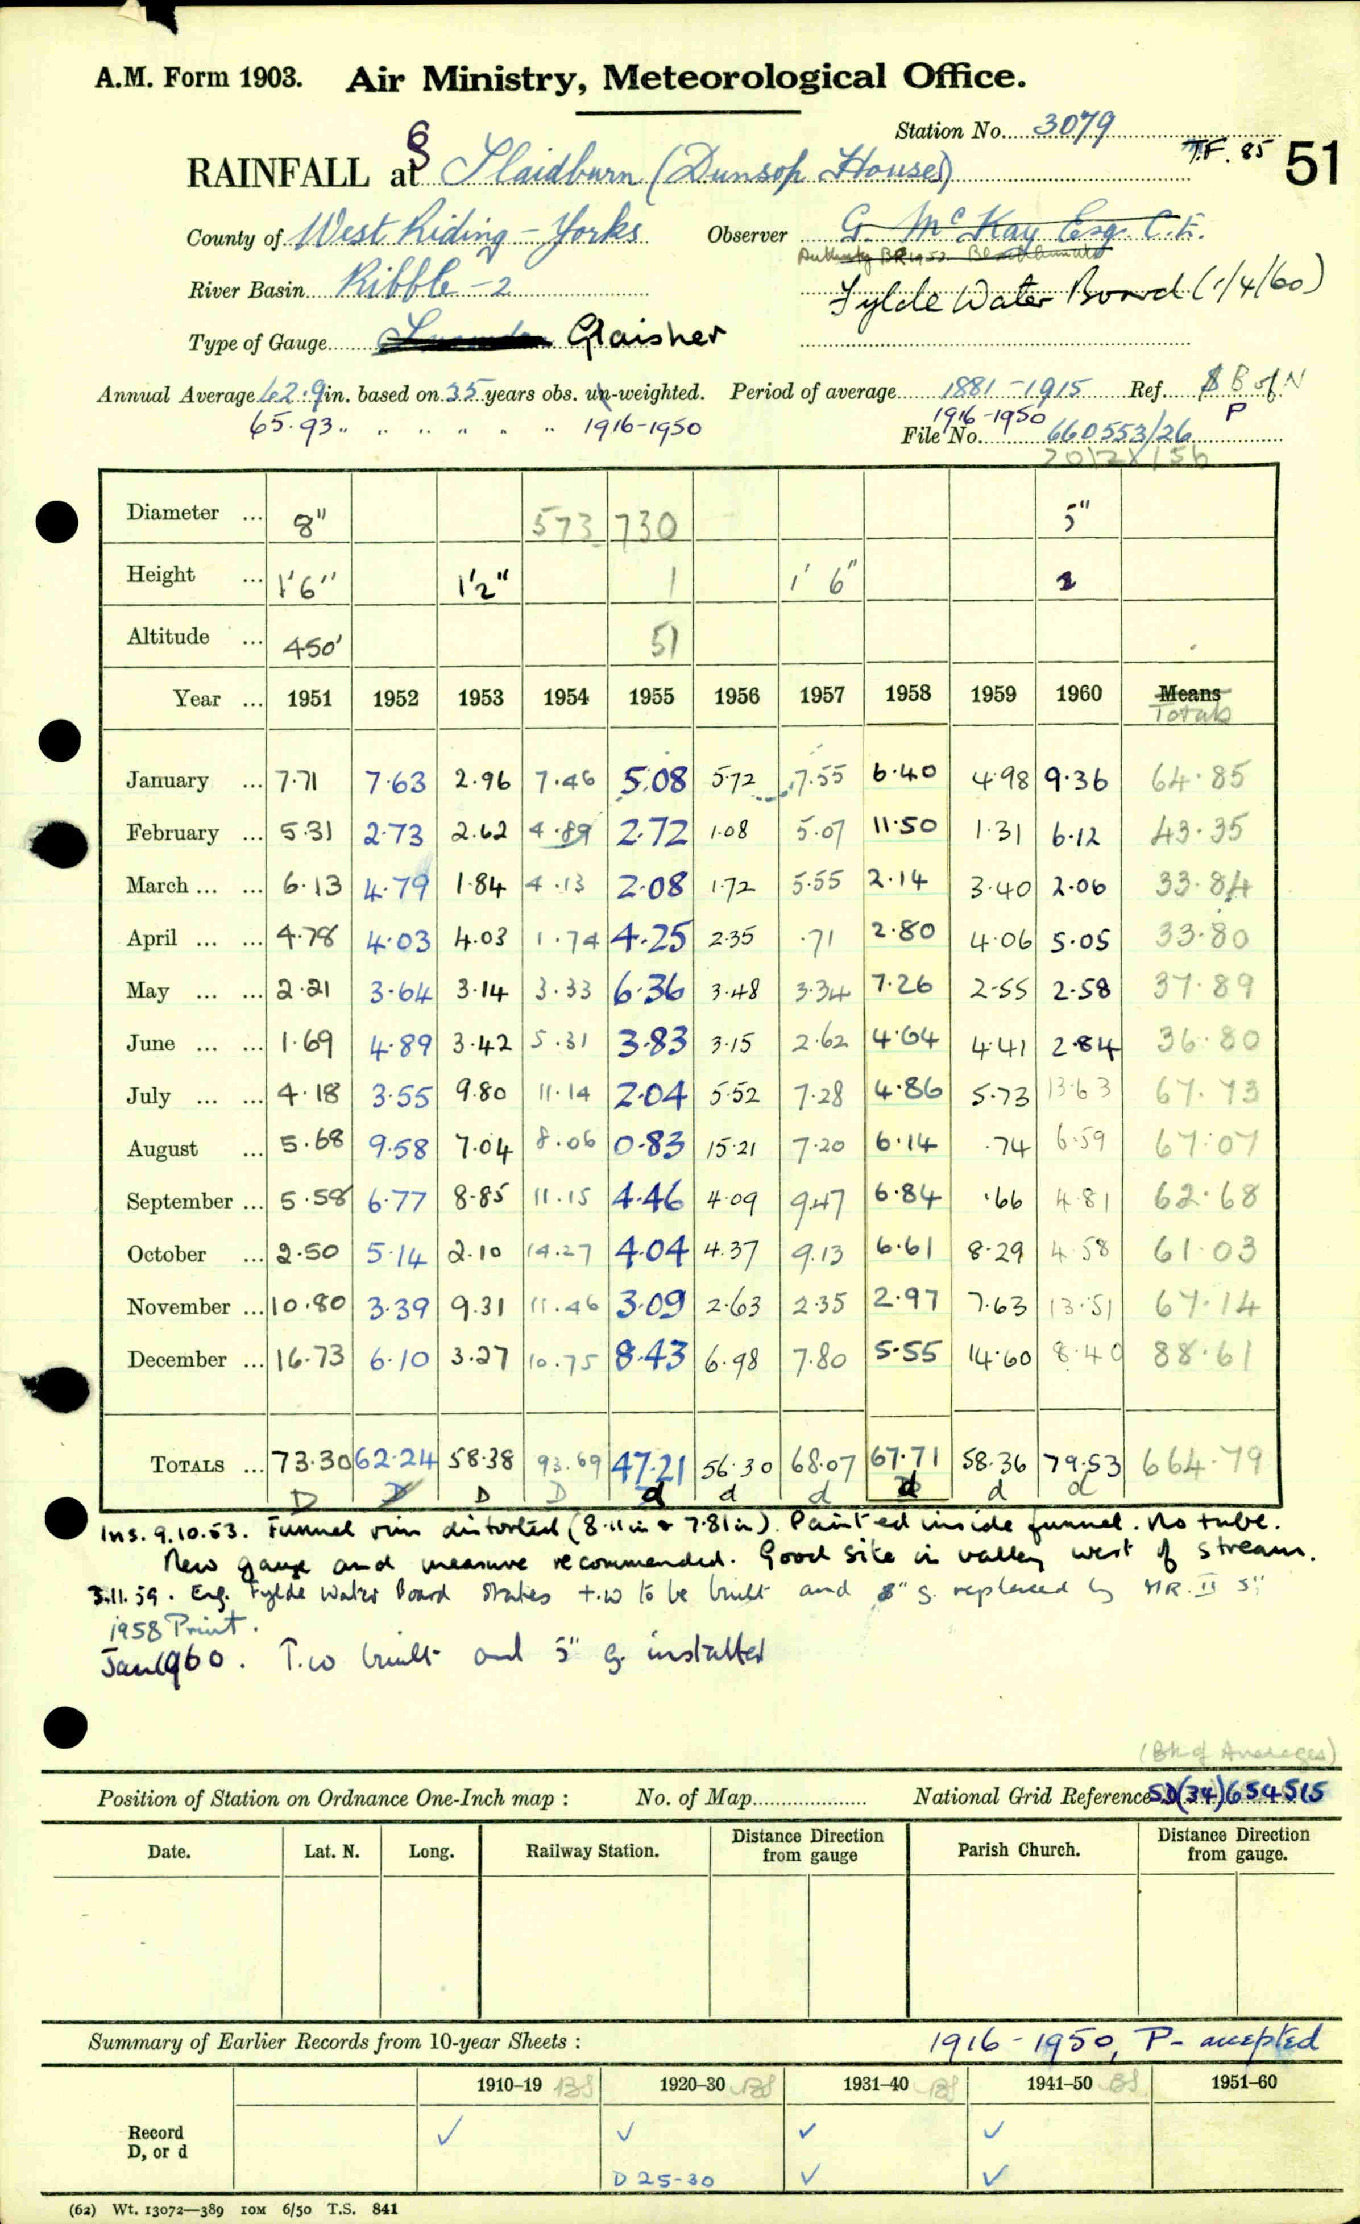 A.M. Form 1903. Air Ministry, Meteorological Office.
Station No. 3079
T.F. 85 51
§
RAINFALL at Slaidburn (Dunsop Houses)
County of West Riding - Yorks Observer G. McKay Esq. C.E.
Authority BR1952
River Basin Ribble - 2 Fylde Water Board (1/4/60)
Type of Gauge Glaisher
Annual Average 62.9 in. based on 35 years obs. un-weighted. Period of average 1881-1915 Ref. $ B of N
65.93 " " " " " " 1916-1950 1916-1950 P
File No. 660553/26
Diameter ... 8" 573 730 5"
Height ... 1'6" 1'2" 1 1' 6" 1
Altitude ... 450' 51
Year ... 1951 1952 1953 1954 1955 1956 1957 1958 1959 1960 Means
Totals
January ... 7.71 7.63 2.96 7.46 5.08 5.72 7.55 6.40 4.98 9.36 64.85
February ... 5.31 2.73 2.62 4.89 2.72 1.08 5.07 11.50 1.31 6.12 43.35
March ... ... 6.13 4.79 1.84 4.13 2.08 1.72 5.55 2.14 3.40 2.06 33.84
April ... ... 4.78 4.03 4.03 1.74 4.25 2.35 .71 2.80 4.06 5.05 33.80
May ... ... 2.21 3.64 3.14 3.33 6.36 3.48 3.34 7.26 2.55 2.58 37.89
June ... ... 1.69 4.89 3.42 5.31 3.83 3.15 2.62 4.64 4.41 2.84 36.80
July ... ... 4.18 3.55 9.80 11.14 2.04 5.52 7.28 4.86 5.73 13.63 67.73
August ... 5.68 9.58 7.04 8.06 0.83 15.21 7.20 6.14 .74 6.59 67.07
September ... 5.58 6.77 8.85 11.15 4.46 4.09 9.47 6.84 .66 4.81 62.68
October ... 2.50 5.14 2.10 14.27 4.04 4.37 9.13 6.61 8.29 4.58 61.03
November ... 10.80 3.39 9.31 11.46 3.09 2.63 2.35 2.97 7.63 13.51 67.14
December ... 16.73 6.10 3.27 10.75 8.43 6.98 7.80 5.55 14.60 8.40 88.61
TOTALS ... 73.30 62.24 58.38 93.69 47.21 56.30 68.07 67.71 58.36 79.53 664.79
D D D D d d d d d d
Ins. 9.10.53. Funnel rim distorted (8.11in & 7.81in). Painted inside funnel. No tube.
New gauge and measure recommended. Good site in valley west of stream.
3.11.59. Eng. Fylde Water Board states t.w to be built and 8" g. replaced by MR. II 5"
1958 Print.
Jan 1960. T.w built and 5" g. installed
(Bk of Averages)
Position of Station on Ordnance One-Inch map : No. of Map National Grid Reference SD(34)654515
Date. Lat. N. Long. Railway Station. Distance Direction from gauge Parish Church. Distance Direction from gauge.
Summary of Earlier Records from 10-year Sheets : 1916 - 1950, P- accepted
1910–19 1920–30 1931–40 1941–50 1951–60
Record ✓ ✓ ✓ ✓
D, or d
D 25-30 ✓ ✓
(62) Wt. 13072—389 10M 6/50 T.S. 841